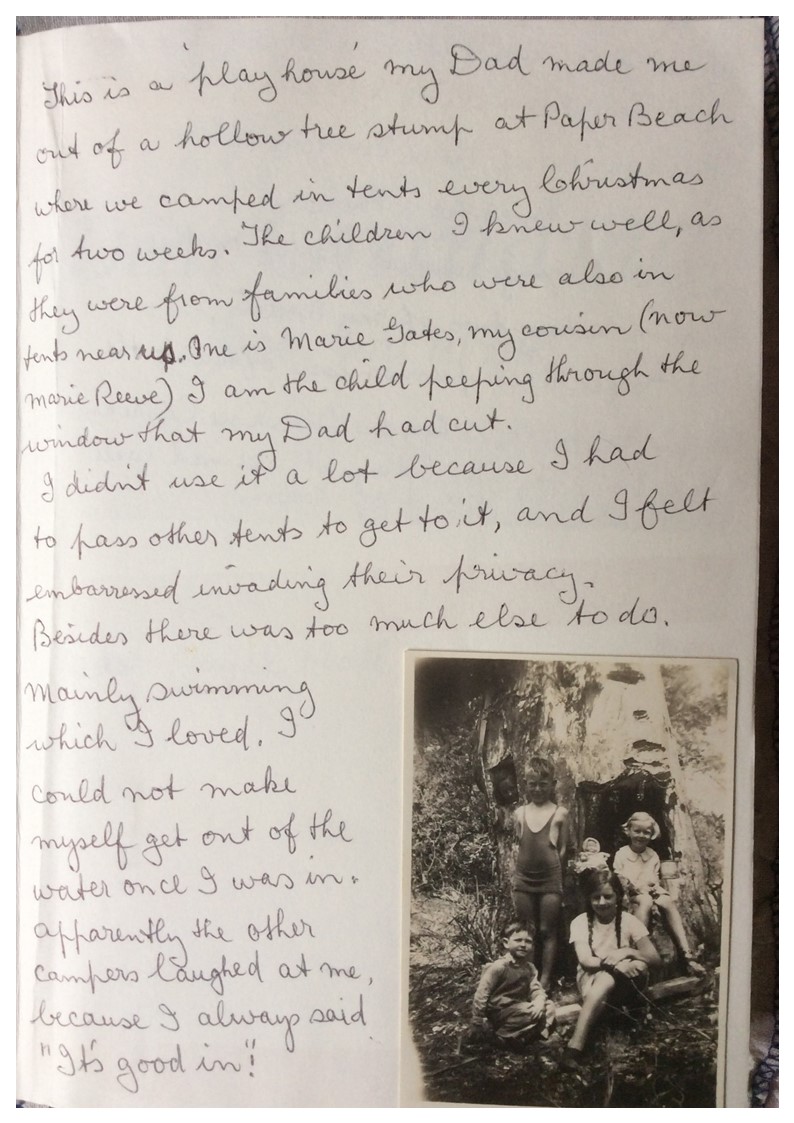 This is a 'playhouse' my Dad made me
out of a hollow tree stump at Paper Beach
where we camped in tents every Christmas
for two weeks. The children I knew well, as
they were from families who were also in
tents near up. One is Marie Gates, my cousin (now
Marie Reeve) I am the child peeping through the
window that my Dad had cut.
I didn't use it a lot because I had
to pass other tents to get to it, and I felt
embarressed invading their privacy.
Besides there was too much else to do.
Mainly swimming
which I loved. I
could not make
myself get out of the
water once I was in.
apparently the other
campers laughed at me,
because I always said
"It's good in"!